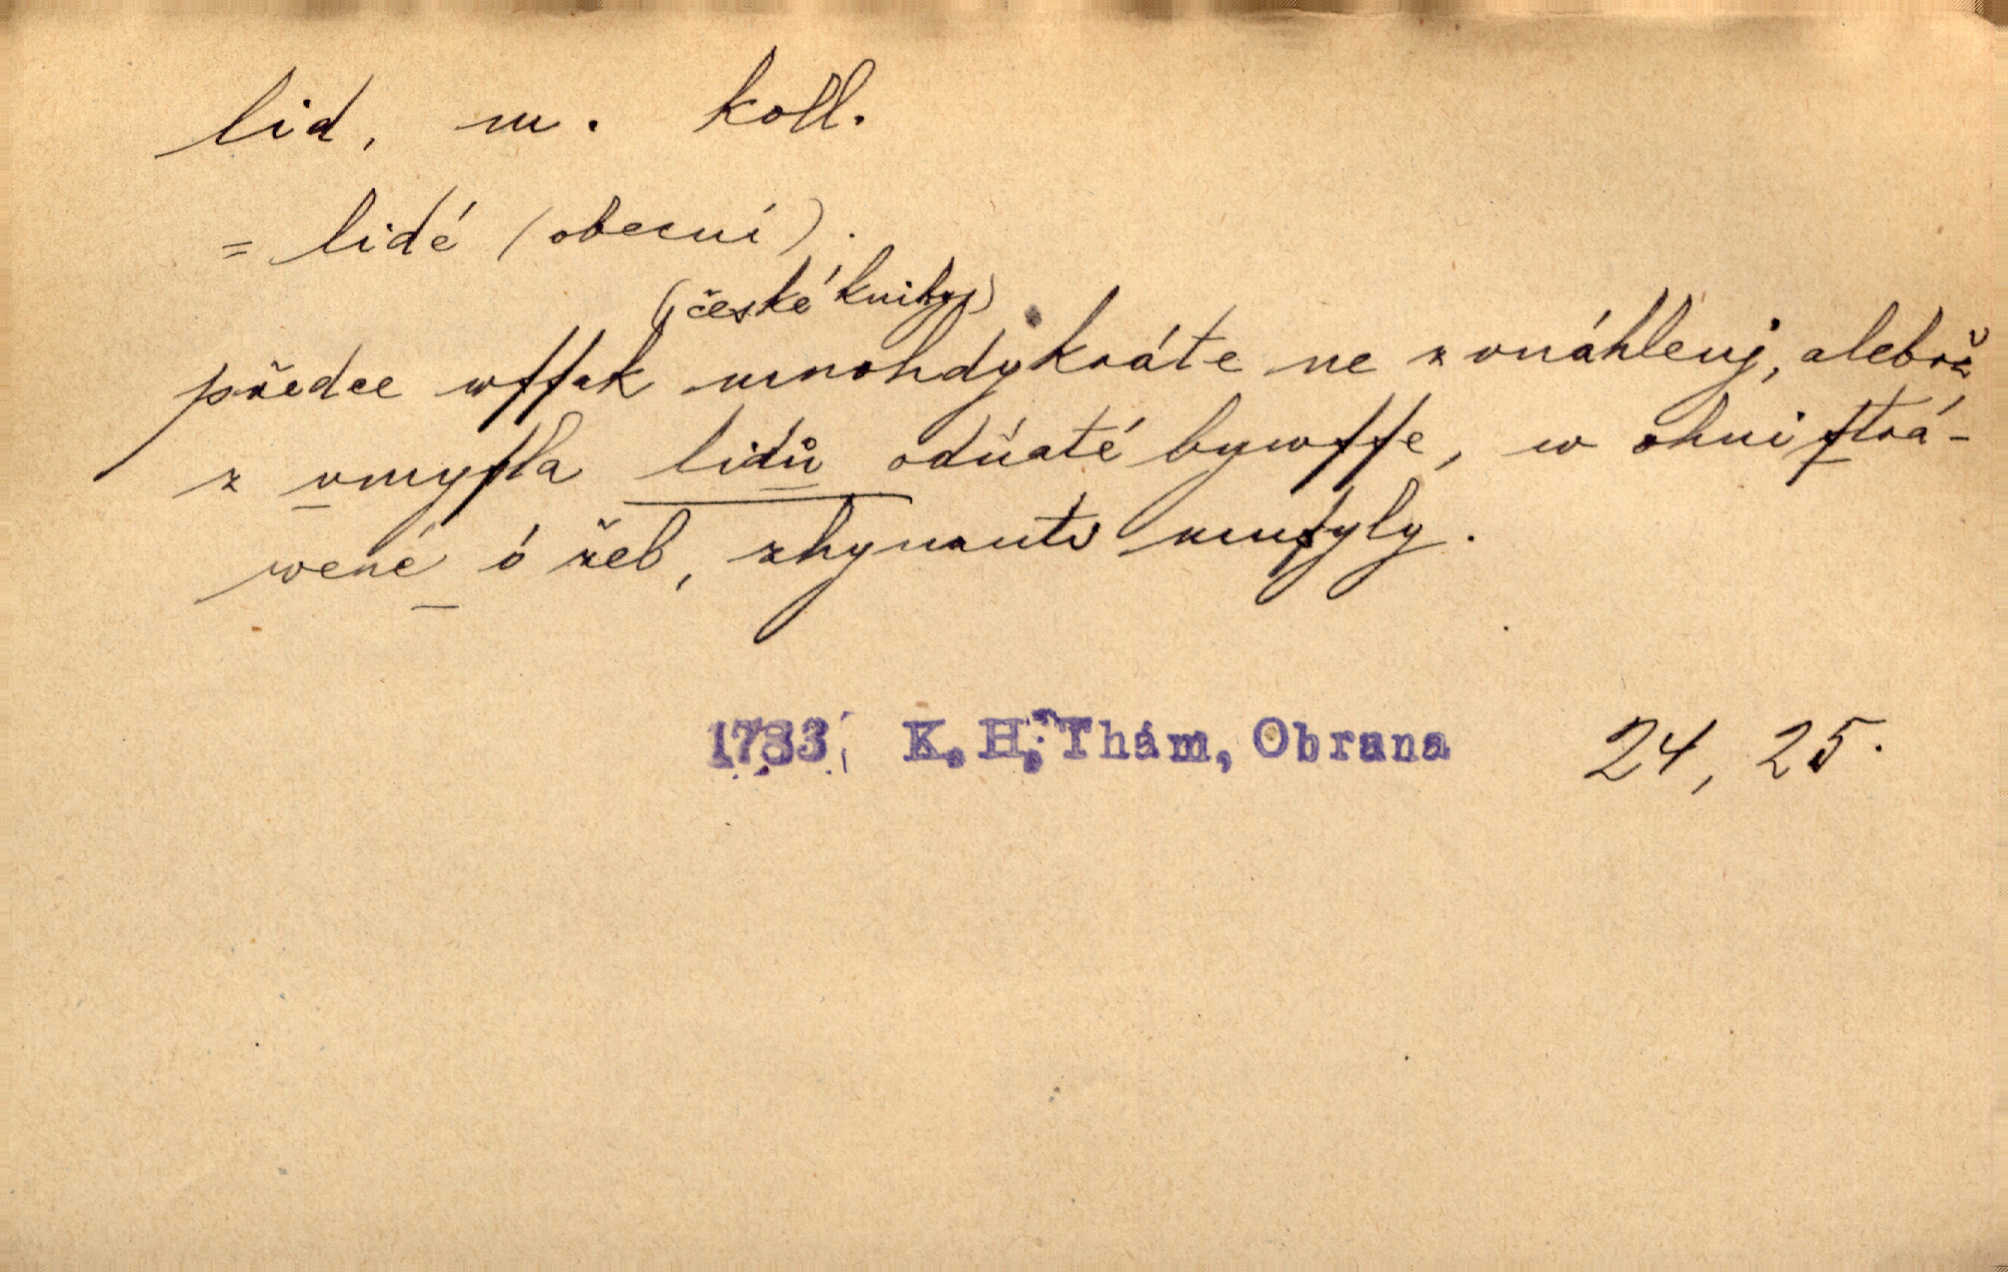 lid, m. koll.
= lidé (obecní).
(české knihy)
předce wſſak mnohdykráte ne z vnáhlenj, alebrž
z vmyſla lidů odňaté bywſſe, w ohni ſtrá-
wené ó žeb, zhynauti muſyly.
1783 K. H. Thám, Obrana 24, 25.